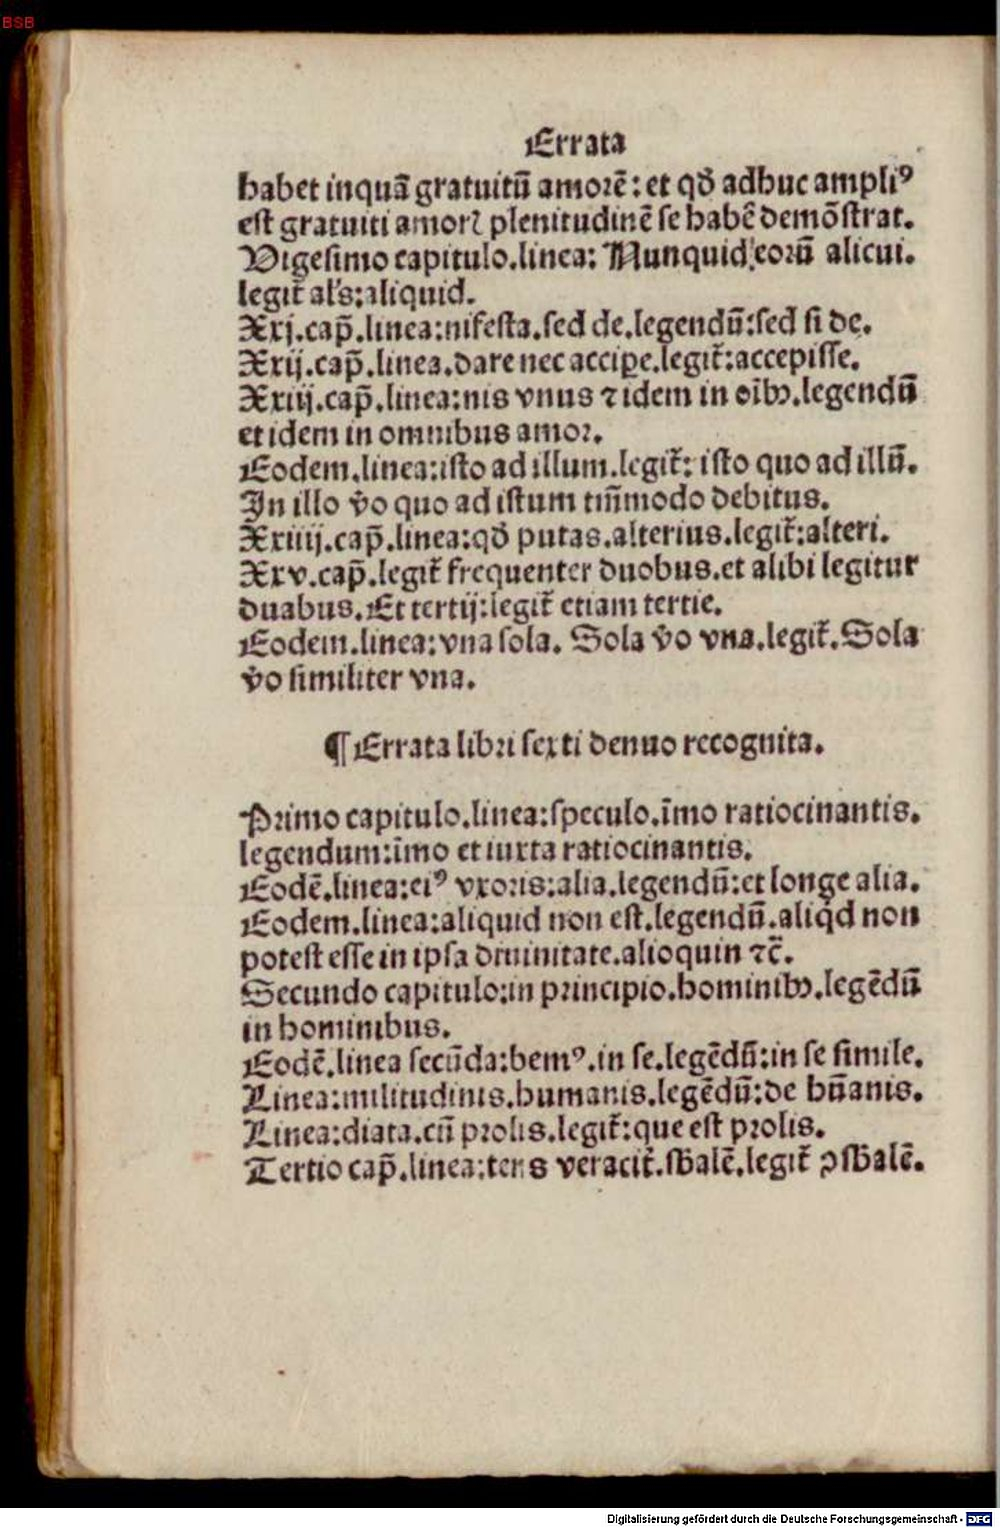 BSB
Errata
habet inquā gratuitū amorē: et qđ adhuc ampliꝰ
est gratuiti amorꝭ plenitudinē se habē demōstrat.
Vigesimo capitulo.linea: Nunquid eorū alicui.
legit̄ al's:aliquid.
Xxj.cap̄.linea:nifesta.sed de.legendū:sed si de.
Xxij.cap̄.linea.dare nec accipe.legit̄:accepisse.
Xxiij.cap̄.linea:nis vnus ⁊ idem in oībꝰ.legendū
et idem in omnibus amor.
Eodem.linea:isto ad illum.legit̄: isto quo ad illū.
In illo v̊o quo ad istum tm̄modo debitus.
Xxiiij.cap̄.linea:qđ putas.alterius.legit̄:alteri.
Xxv.cap̄.legit̄ frequenter duobus.et alibi legitur
duabus.Et tertij:legit̄ etiam tertie.
Eodem.linea:vna sola. Sola v̊o vna.legit̄.Sola
v̊o similiter vna.
¶ Errata libri sexti denuo recognita.
Primo capitulo.linea:speculo.īmo ratiocinantis.
legendum:īmo et iuxta ratiocinantis.
Eodē.linea:eiꝰ vxoris:alia.legendū:et longe alia.
Eodem.linea:aliquid non est.legendū.aliqd non
potest esse in ipsa diuinitate.alioquin ⁊c̄.
Secundo capitulo:in principio.hominibꝰ.legēdū
in hominibus.
Eodē.linea secūda:bemꝰ.in se.legēdū:in se simile.
Linea:militudinis.humanis.legēdū:de hūanis.
Linea:diata.cū prolis.legit̄:que est prolis.
Tertio cap̄.linea:tens veracit̄.sb̄alē.legit̄ ꝯsb̄alē.
Digitalisierung gefördert durch die Deutsche Forschungsgemeinschaft - DFG